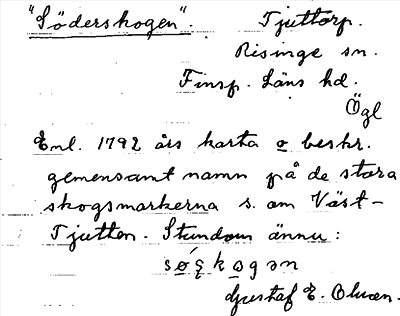 "Söderskogen". Tjuttorp.
Risinge sn.
Finsp. Läns hd.
Ögl
Enl. 1792 års karta o beskr.
gemensamt namn på de stora
skogsmarkerna s. om Väst-
Tjutten. Stundom ännu:
Gustaf E. Olsson.